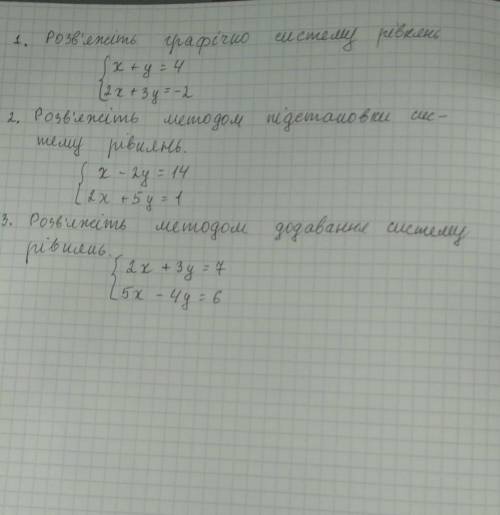 1. Розв'яжіть графічно систему рівнянь
{ x + y = 4
2x + 3y = -2
2. Розв'яжіть методом підстановки сис-
тему рівнянь.
{ x - 2y = 14
2x + 5y = 1
3. Розв'яжіть методом додавання систему
рівнянь.
{ 2x + 3y = 7
5x - 4y = 6